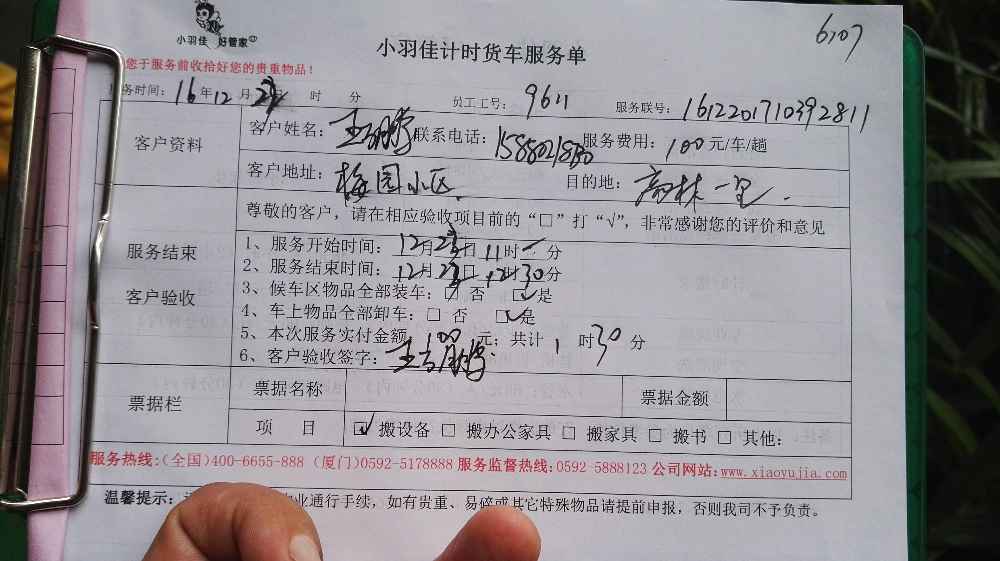 小羽佳 好管家
6107
小羽佳计时货车服务单
您于服务前收拾好您的贵重物品！
务时间：16年12月 日 时 分 员工工号：9611 服务联号：1612201710392811
客户资料
客户姓名：王 鹏 联系电话： 服务费用：100元/车/趟
客户地址：梅园小区 目的地：高林一里
尊敬的客户，请在相应验收项目前的“□”打“√”，非常感谢您的评价和意见
服务结束
客户验收
1、服务开始时间：12月 日 11时 分
2、服务结束时间：12月 日 12时30分
3、候车区物品全部装车：□ 否 ☑是
4、车上物品全部卸车：□ 否 ☑是
5、本次服务实付金额 100 元；共计 1 时30分
6、客户验收签字：王 鹏
票据栏
票据名称 票据金额
项 目 ☑搬设备 □ 搬办公家具 □ 搬家具 □ 搬书 □ 其他：
服务热线:(全国)400-6655-888 (厦门)0592-5178888 服务监督热线:0592-5888123 公司网站:www.xiaoyujia.com
温馨提示： 业通行手续，如有贵重、易碎或其它特殊物品请提前申报，否则我司不予负责。